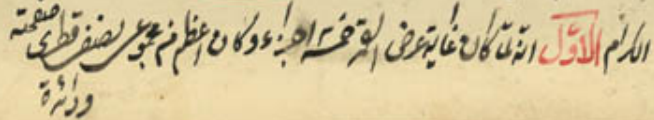 الكرام الاول انه لما كان غاية عرض القمر خمسة اجزاء وكان اعظم من مجموع نصف قطرى صفحته
ودائرة